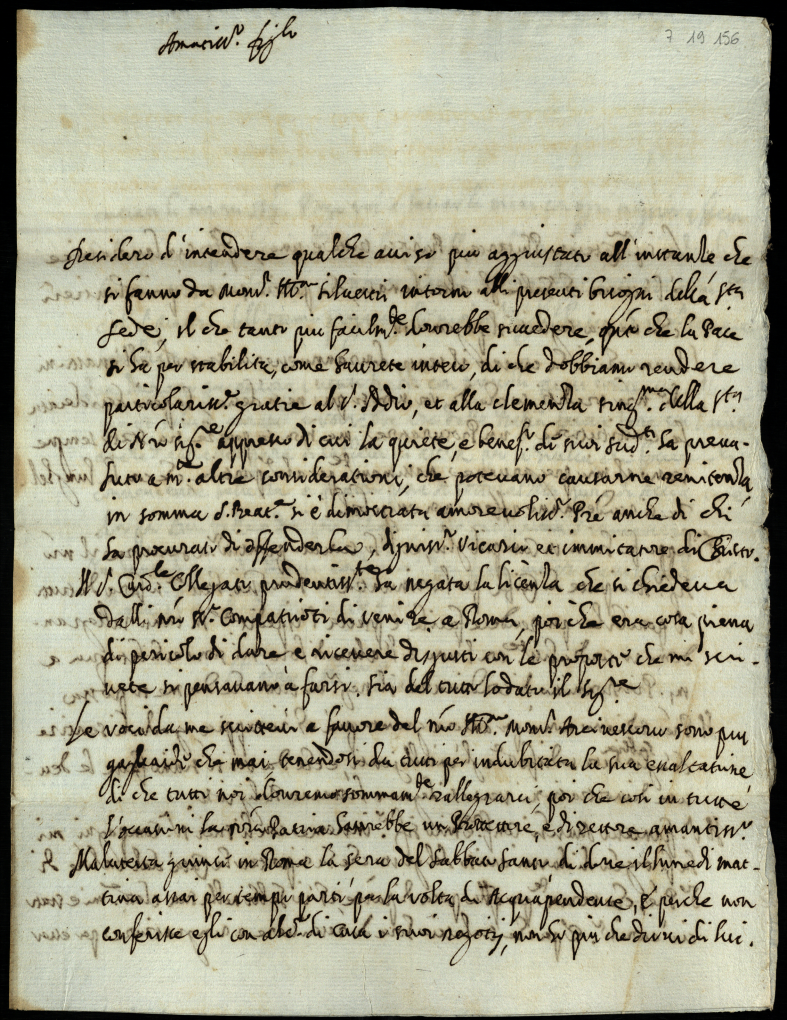 7 19 156
Amatiss.º figlo
Desidero d'intendere qualche aviso più aggiustato all'instanze che
si fanno da Mons.r Ill.mo Silvestri intorno alli presenti bisogni della S.ta
Sede, il che tanto più facilm.te dovrebbe succedere, che la Pace
si ha per stabilita, come havrete inteso, di che dobbiamo rendere
particolariss.e gratie al S. Iddio, et alla clemenza sing.ma della S.tà
di N.ro Sig.re appresso di cui la quiete, e benef.o de suoi sud.ti ha preva-
luto a m.te altre considerationi, che potevano causarne renitenza
in somma S. Beat.e si è dimostrata amorevoliss.o P.re anche di chi
ha procurato di offenderlo, digniss.o Vicario et immitatore di Christo.
Il S. Card.le Collegato prudentiss.te ha negata la licenza che si chiedeva
dalli n.ri SS.ri Compatrioti di venire a Roma, poiche era cosa piena
di pericolo di dare e ricevere disgusti con le proposte che mi scri-
vete si pensavano à farsi, sia del tutto lodato il Sig.re
Le voci da me scrittevi a favore del n.ro Ill.mo Mons.r Arcivescovo sono più
gagliarde che mai tenendosi da tutti per indubitata la sua esaltatione
di che tutti noi dovremo sommam.te rallegrarci, poi che così in tutte
l'occasioni la Patria havrebbe un Protettore, e direttore amantiss.o
Malatesta gionse in Roma la sera del Sabbato Santo di dove il lunedi mat-
tina assai per tempo partì per la volta di Acquapendente, e perche non
conferisce egli con alc.o di Casa i suoi negotij, non so più che dirvi di lui.